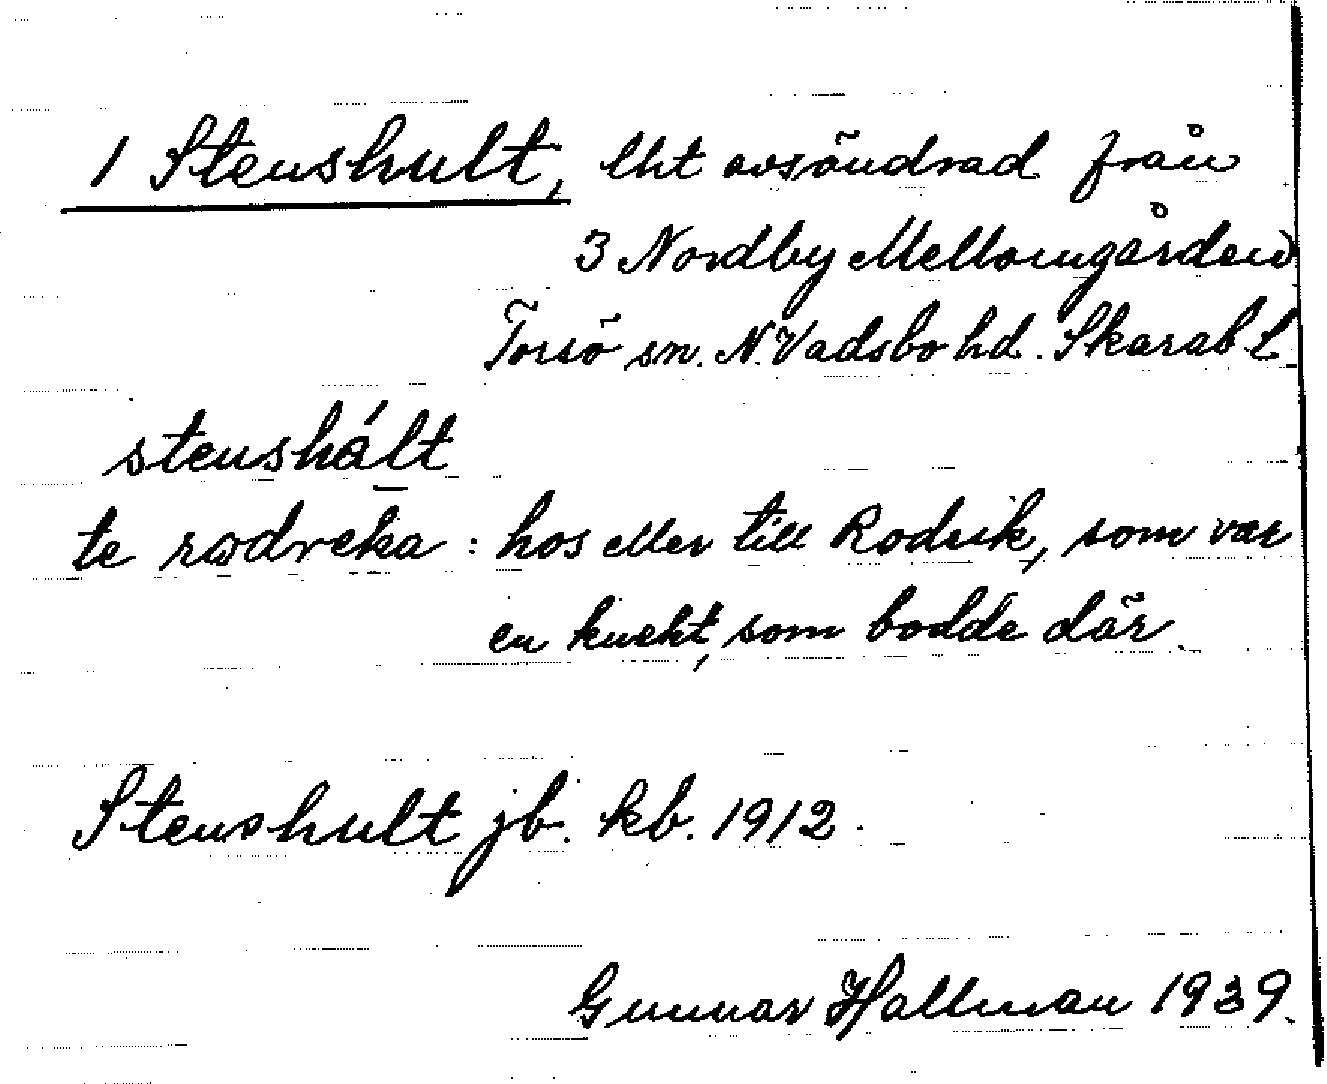 1 Stenshult, lht avsöndrad från
3 Nordby Mellomgården
Torsö sn. N. Vadsbo hd. Skarab L.
stenshált
te rødreka: hos eller till Rodrik, som var
en knekt, som bodde där.
Stenshult jb. kb. 1912.
Gunnar Hallman 1939.